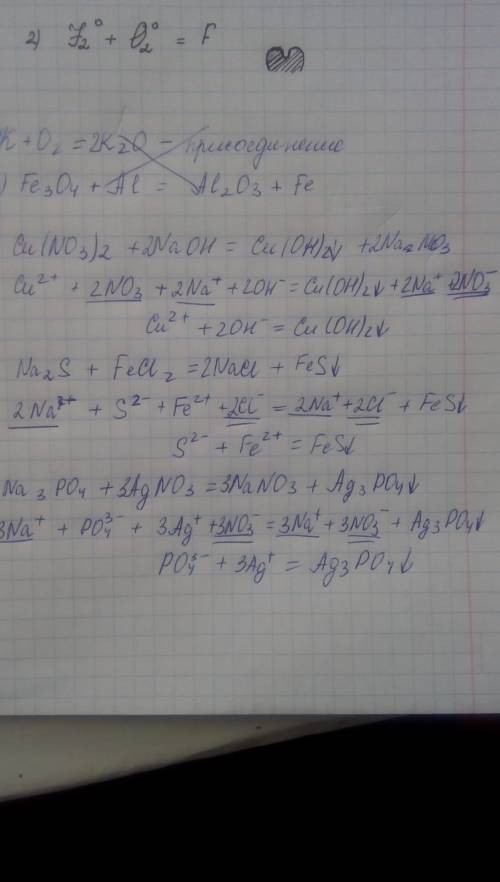 2) F₂⁰ + O₂⁰ = F
K + O₂ = 2K₂O - присоединение
) Fe₃O₄ + Al = Al₂O₃ + Fe
Cu(NO₃)₂ + 2NaOH = Cu(OH)₂↓ + 2NaNO₃
Cu²⁺ + 2NO₃ + 2Na⁺ + 2OH⁻ = Cu(OH)₂↓ + 2Na⁺ 2NO₃⁻
Cu²⁺ + 2OH⁻ = Cu(OH)₂↓
Na₂S + FeCl₂ = 2NaCl + FeS↓
2Na⁺ + S²⁻ + Fe²⁺ + 2Cl⁻ = 2Na⁺ + 2Cl⁻ + FeS↓
S²⁻ + Fe²⁺ = FeS↓
Na₃PO₄ + 3AgNO₃ = 3NaNO₃ + Ag₃PO₄↓
3Na⁺ + PO₄³⁻ + 3Ag⁺ + 3NO₃⁻ = 3Na⁺ + 3NO₃⁻ + Ag₃PO₄↓
PO₄³⁻ + 3Ag⁺ = Ag₃PO₄↓